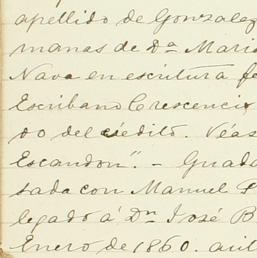 apellido de Gonzalez
manas de Dª Maria
Nava en escritura
Escribano Crescencio
do del crédito. Véas
Escandon". - Guada
sada con Manuel
legado á Dn José B
Enero de 1860.